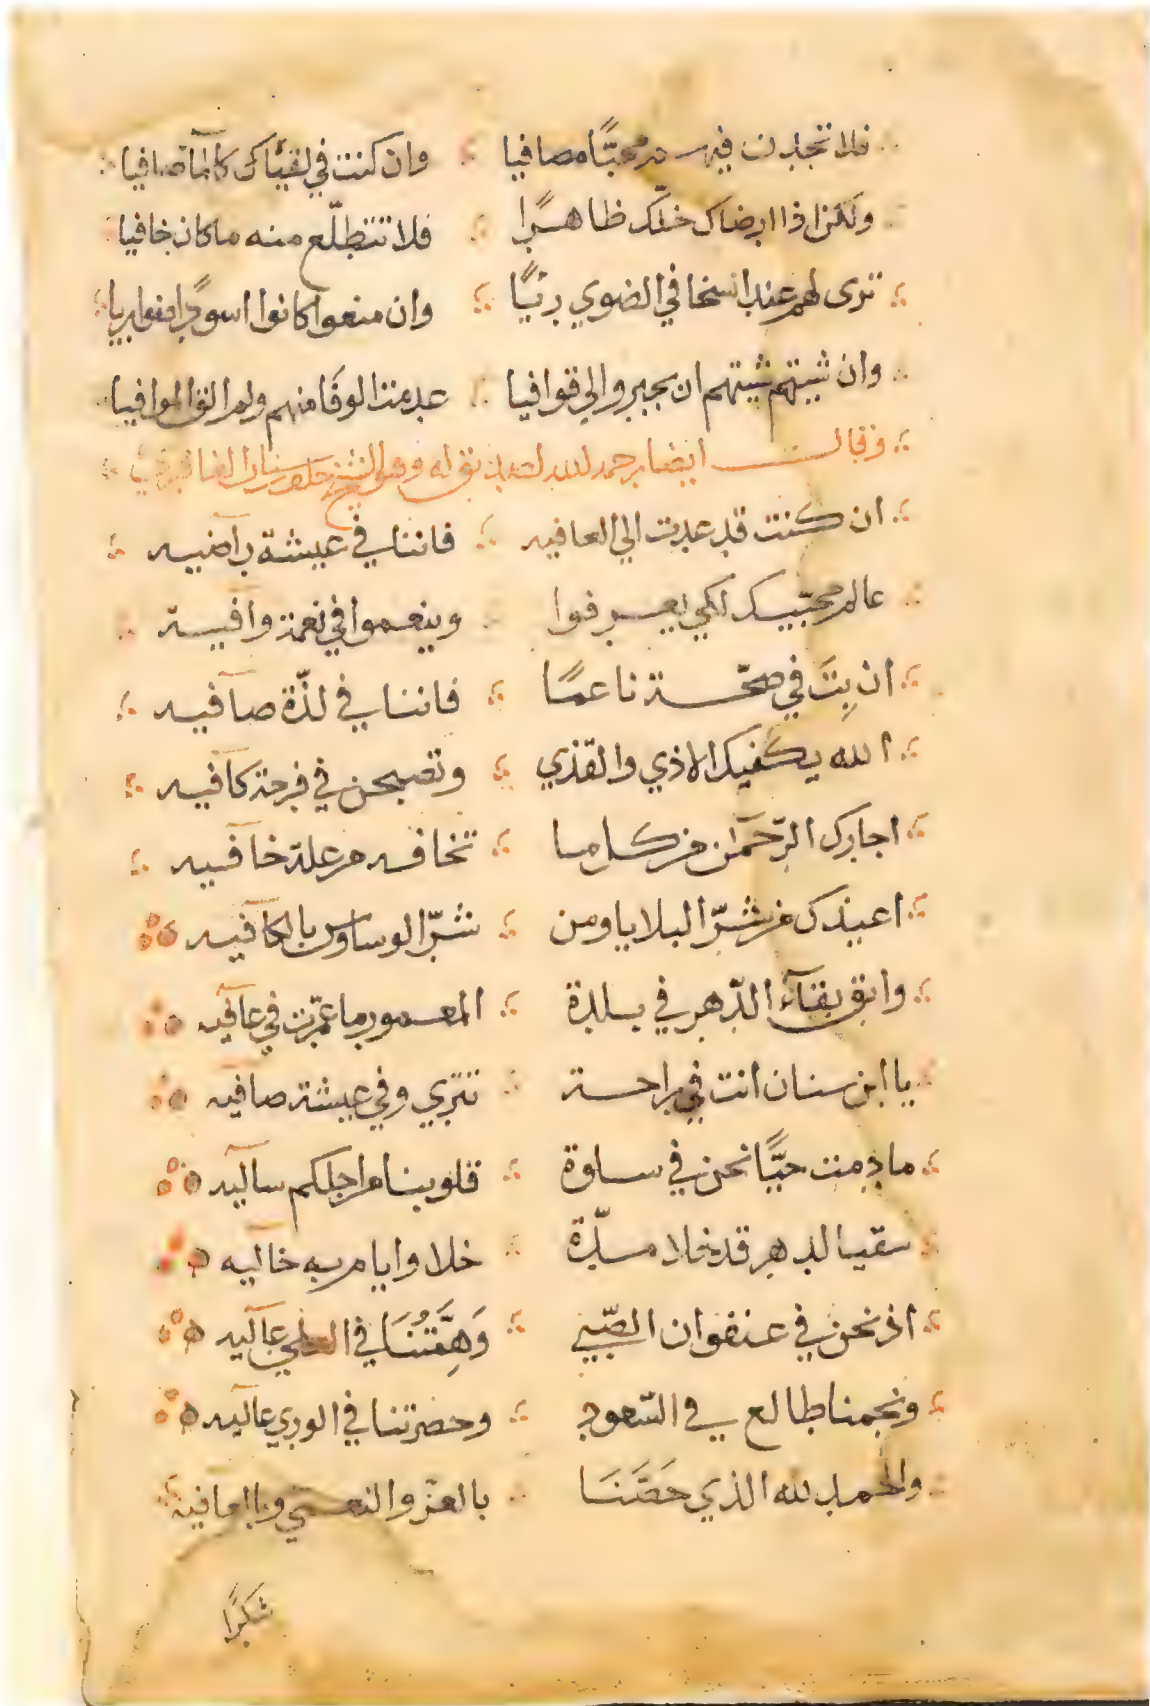 فلا تجدن فيهم محبًّا مصافيا وان كنت في لقياك كالمآ صافيا
ولكن اذا ارضاك خلّك ظاهرًا فلا تتطلّع منه ما كان خافيا
ترى لهم عند السخا في الضوي ريًّا وان منعوا كانوا اسودًا
وان ثبتهم ثبتهم ان يجبروا لي قوافيا عدمت الوفا منهم ولم الق الموافيا
وقال ايضا رحمه الله
ان كنت قد عدت الي العافيه فاننا في عيشة رآضيه
عالم محبّيك لكي يعرفوا وينعموا في نعمة وآفية
ان بِتَ في صحّة ناعمًا فاننا في لذّة صآفيه
الله يكفيك الاذي والقذي وتصبحن في فرحة كآفيه
اجارك الرّحمآن من كل ما تخافه من علة خآفيه
اعيذك من شرّ البلايا ومن شرّ الوساوس بالكآفيه
وابق بقآء الدّهر في بلدة المعمور ما عمّرت في عآفيه
يا ابن سنان انت في راحة تتري وفي عيشة صآفيه
ما دمت حيًّا نحن في سلوة قلوبنا من اجلكم سآليه
سقيا لدهر قد خلا مدّة خلا وايام به خآليه
اذ نحن في عنفوان الصّبي وَهِمَّتُنَا في العلي عآليه
ونجمنا طالع في السّعود وحضرتنا في الوري عآليه
والحمد لله الذي خصَّنَا بالعزّ والنعمي وبالعآفيه
شكرًا